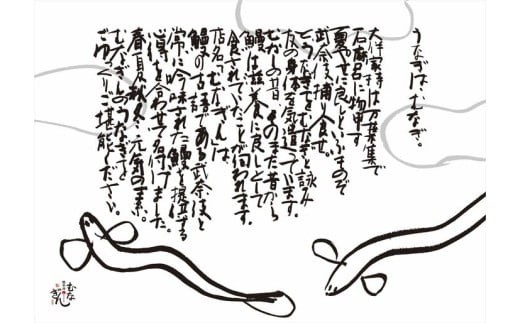 うなぎは、むなぎ。
大伴家持は万葉集で
石麻呂に物申す
夏やせに良しといふものぞ
武奈伎捕り食せ。
という歌で むなぎを詠み
友の身体を気遣っています。
むかしの昔、そのまた昔から
鰻は滋養に良しとして
食されていたことが伺われます。
店名の「むなぎん」は
鰻の古語である武奈伎と
常に吟味された鰻を提供する
導を合わせて名付けました。
春夏秋冬、元気の素。
むなぎんのうなぎを
ごゆっくりご堪能ください。
むなぎん